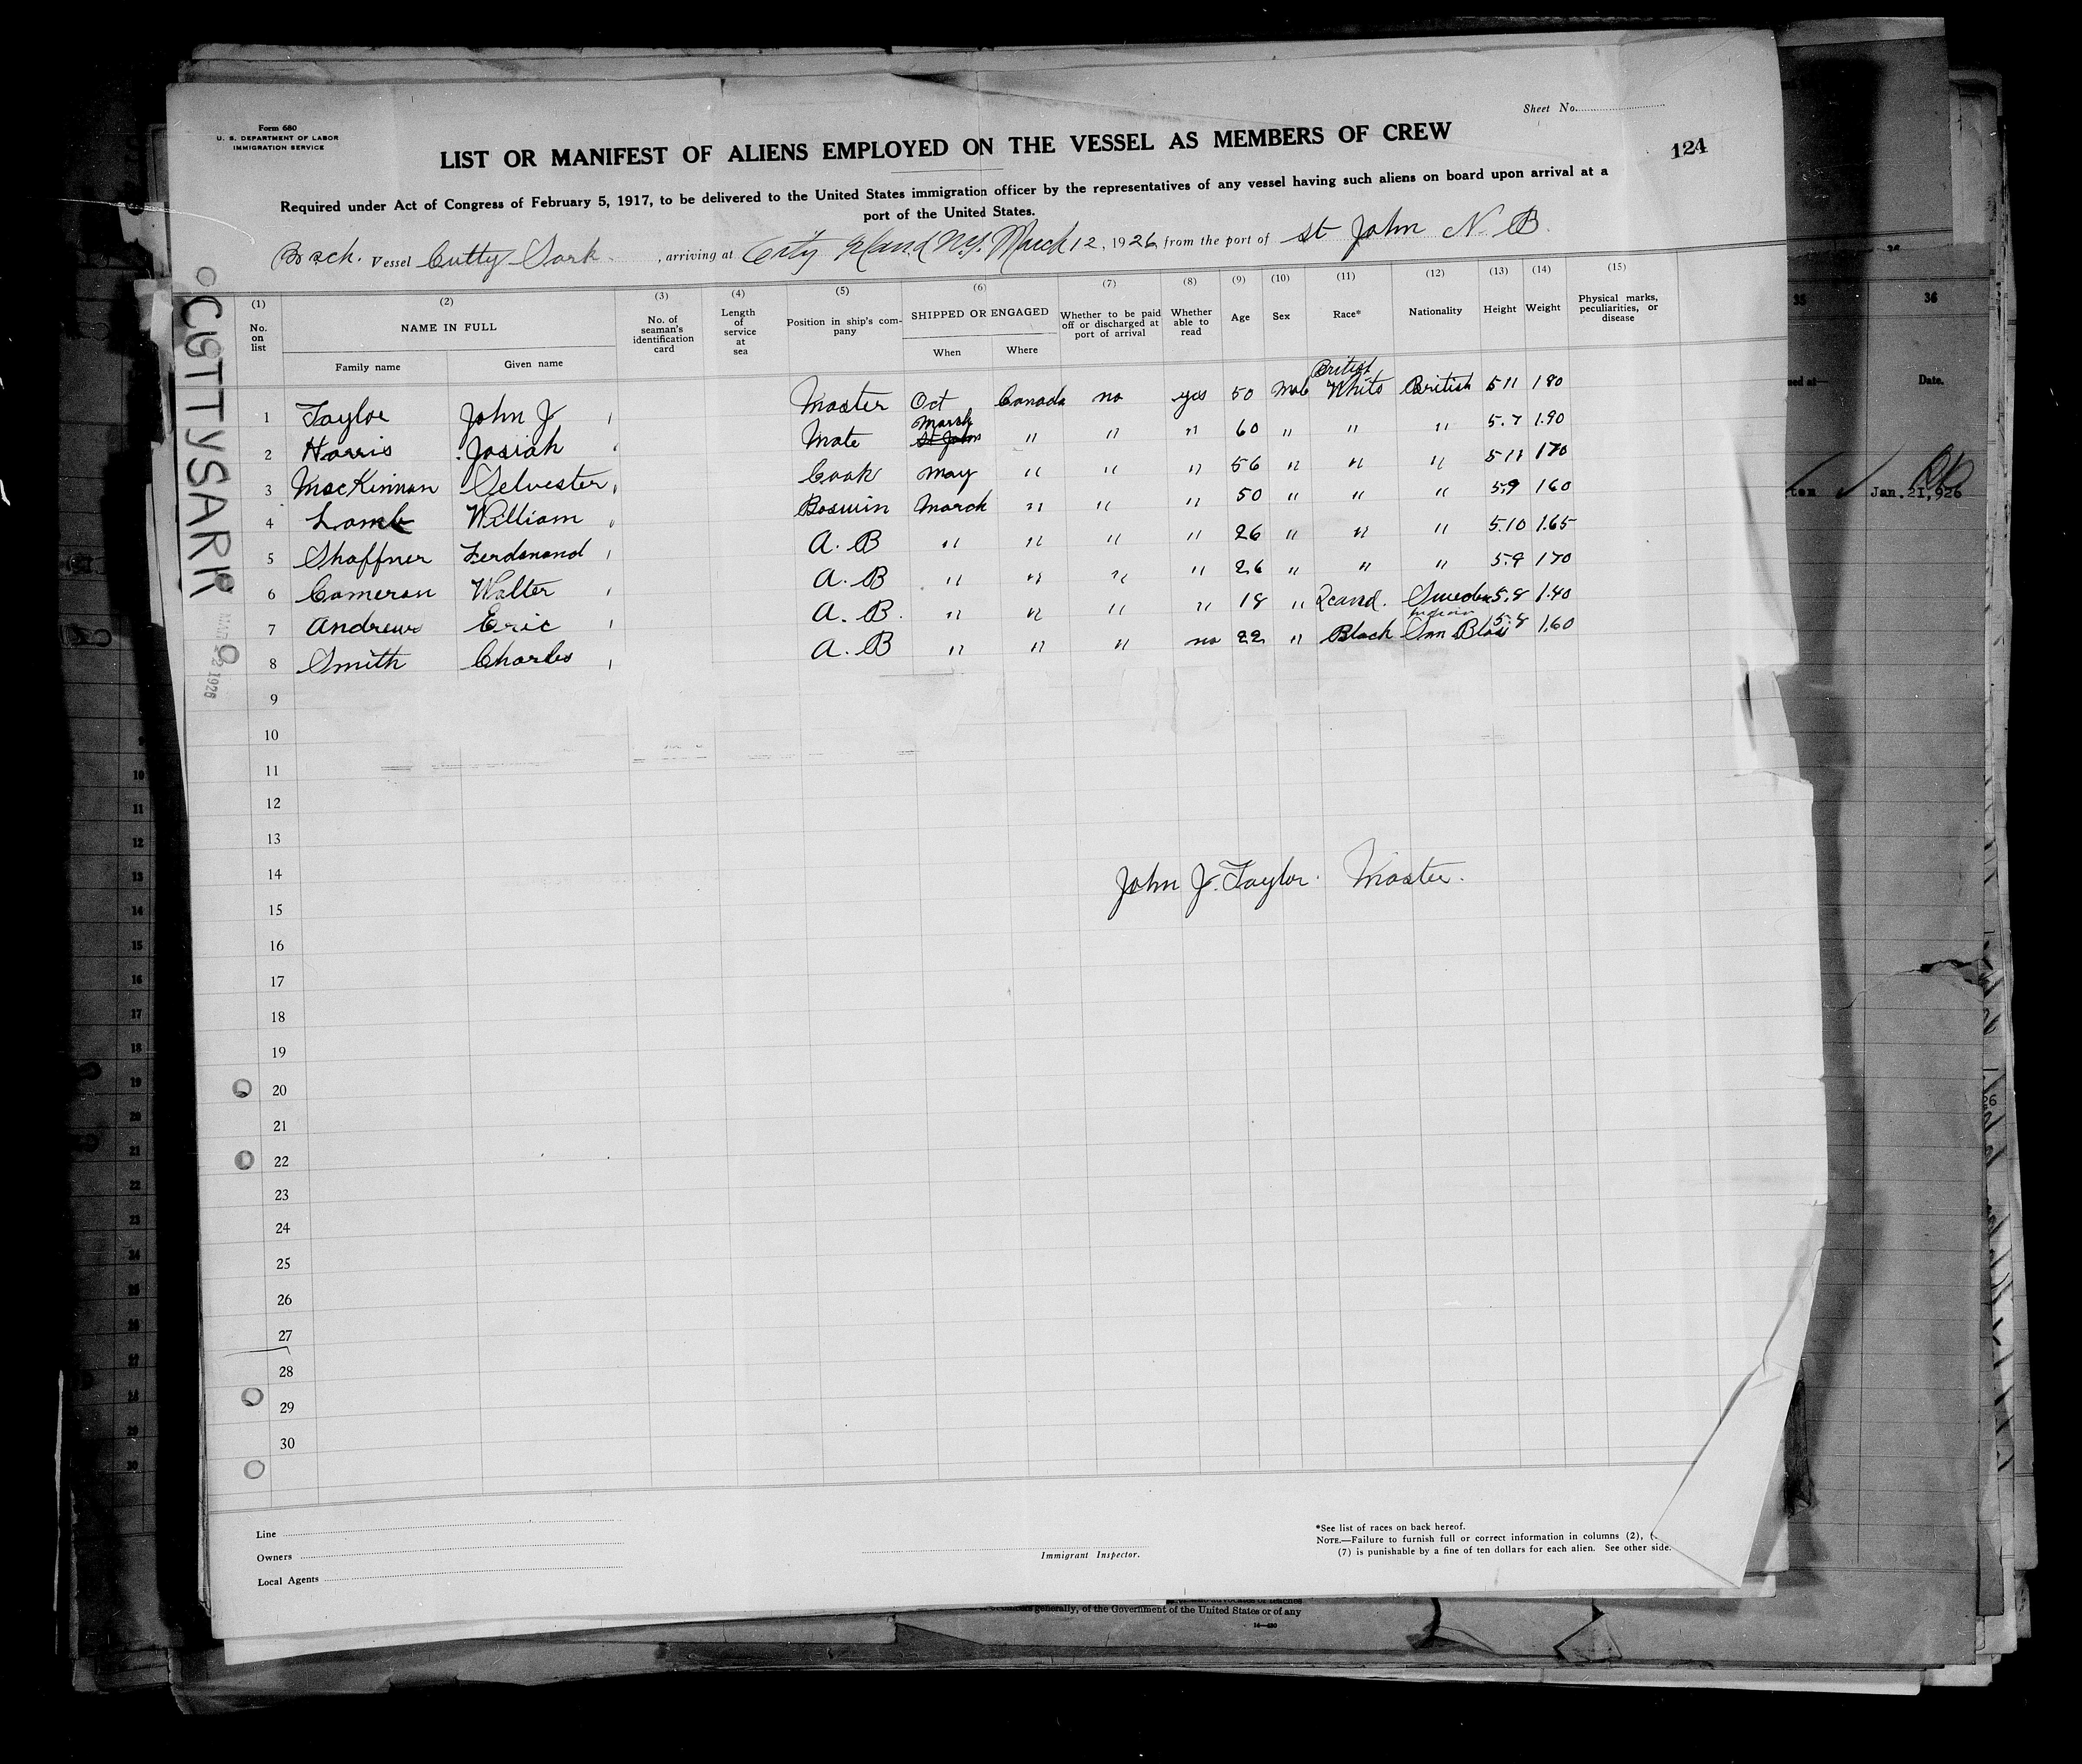 Sheet No.
Form 680
U. S. DEPARTMENT OF LABOR
IMMIGRATION SERVICE
124
LIST OR MANIFEST OF ALIENS EMPLOYED ON THE VESSEL AS MEMBERS OF CREW
Required under Act of Congress of February 5, 1917, to be delivered to the United States immigration officer by the representatives of any vessel having such aliens on board upon arrival at a
port of the United States.
Br sch. Vessel Cutty Sark, arriving at City Island N.Y. March 12, 1926, from the port of St John N. B.
CUTTYSARK
MAR 12 1926
(1) (2) (3) (4) (5) (6) (7) (8) (9) (10) (11) (12) (13) (14) (15)
No. on list NAME IN FULL No. of seaman's identification card Length of service at sea Position in ship's company SHIPPED OR ENGAGED Whether to be paid off or discharged at port of arrival Whether able to read Age Sex Race* Nationality Height Weight Physical marks, peculiarities, or disease
Family name Given name When Where
British
1 Taylor John J Master Oct Canada no yes 50 Male White British 5 11 180
2 Harris Josiah Mate March St John " " " 60 " " " 5.7 1.90
3 MacKinnon Selvester Cook May " " " 56 " " " 5 11 170
4 Lamb William Boswin March " " " 50 " " " 5.9 160
5 Shaffner Ferdanand A. B " " " " 26 " " " 5.10 1.65
6 Cameron Walter A. B " " " " 26 " " " 5.9 170
7 Andrews Eric A. B. " " " " 18 " Scand. Sweden 5.8 1.40
8 Smith Charles A. B " " " no 22 " Black San Blas Indian 5.8 1.60
9
10
11
12
13
14
John J. Taylor. Master.
15
16
17
18
19
20
21
22
23
24
25
26
27
28
29
30
Line
Owners
Local Agents
Immigrant Inspector.
*See list of races on back hereof.
NOTE.—Failure to furnish full or correct information in columns (2), (
(7) is punishable by a fine of ten dollars for each alien. See other side.
generally, of the Government of the United States or of any
35 36
Date.
Jan. 21, 926